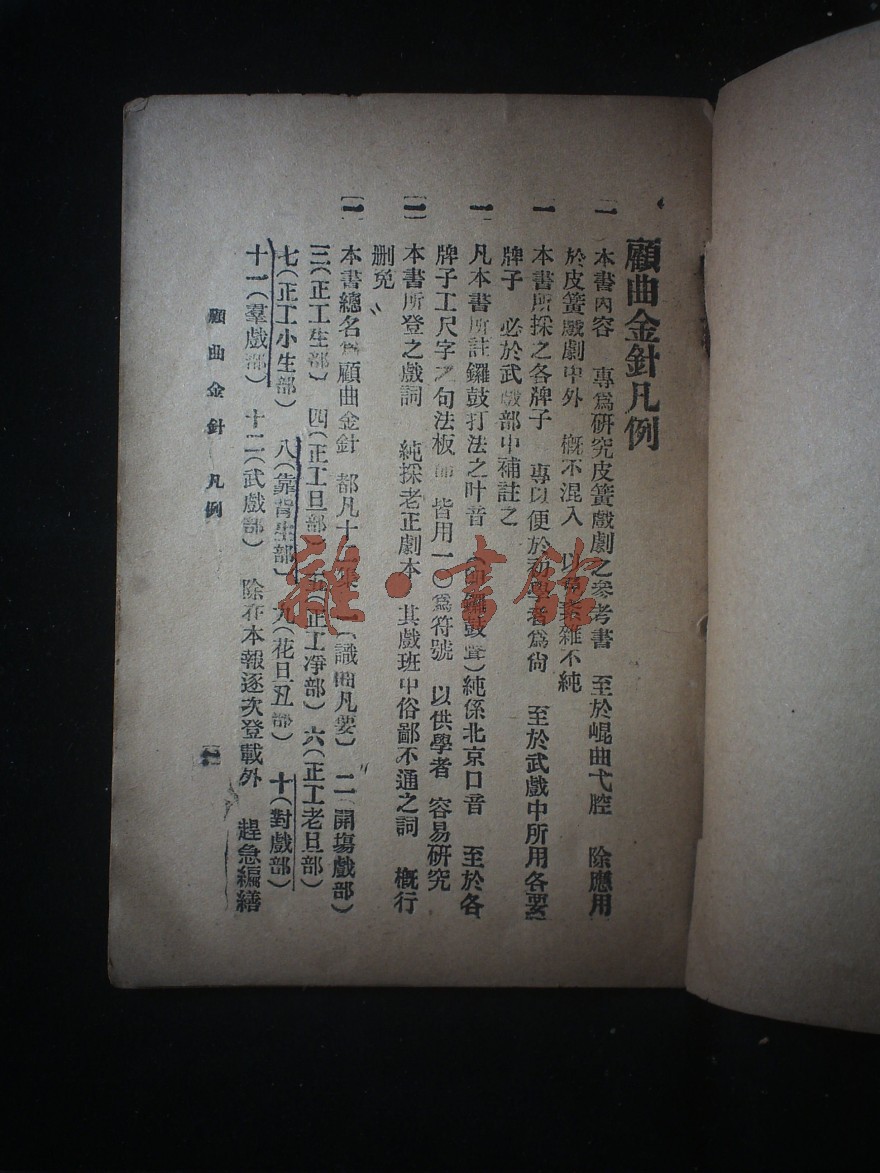 顧曲金針凡例
一 本書內容 專爲研究皮簧戲劇之參考書 至於崐曲弋腔 除應用
於皮簧戲劇中外 槪不混入 以 雜不純
一 本書所採之各牌子 專以便於初學者爲尙 至於武戲中所用各要
牌子 必於武戲部中補註之
一 凡本書所註鑼鼓打法之叶音（卽鑼鼓聲）純係北京口音 至於各
牌子工尺字之句法板 皆用一〇爲符號 以供學者 容易硏究
一 本書所登之戲詞 純採老正劇本 其戲班中俗鄙不通之詞 槪行
删免
一 本書總名爲顧曲金針 都凡十二 一（識曲凡要） 二（開塲戲部）
三（正工生部） 四（正工旦部） 五（正工凈部） 六（正工老旦部）
七（正工小生部） 八（靠背生部） 九（花旦丑部） 十（對戲部）
十一（羣戲部） 十二（武戲部） 除在本報逐次登載外 趕急編繕
顧曲金針 凡例
雜·書館